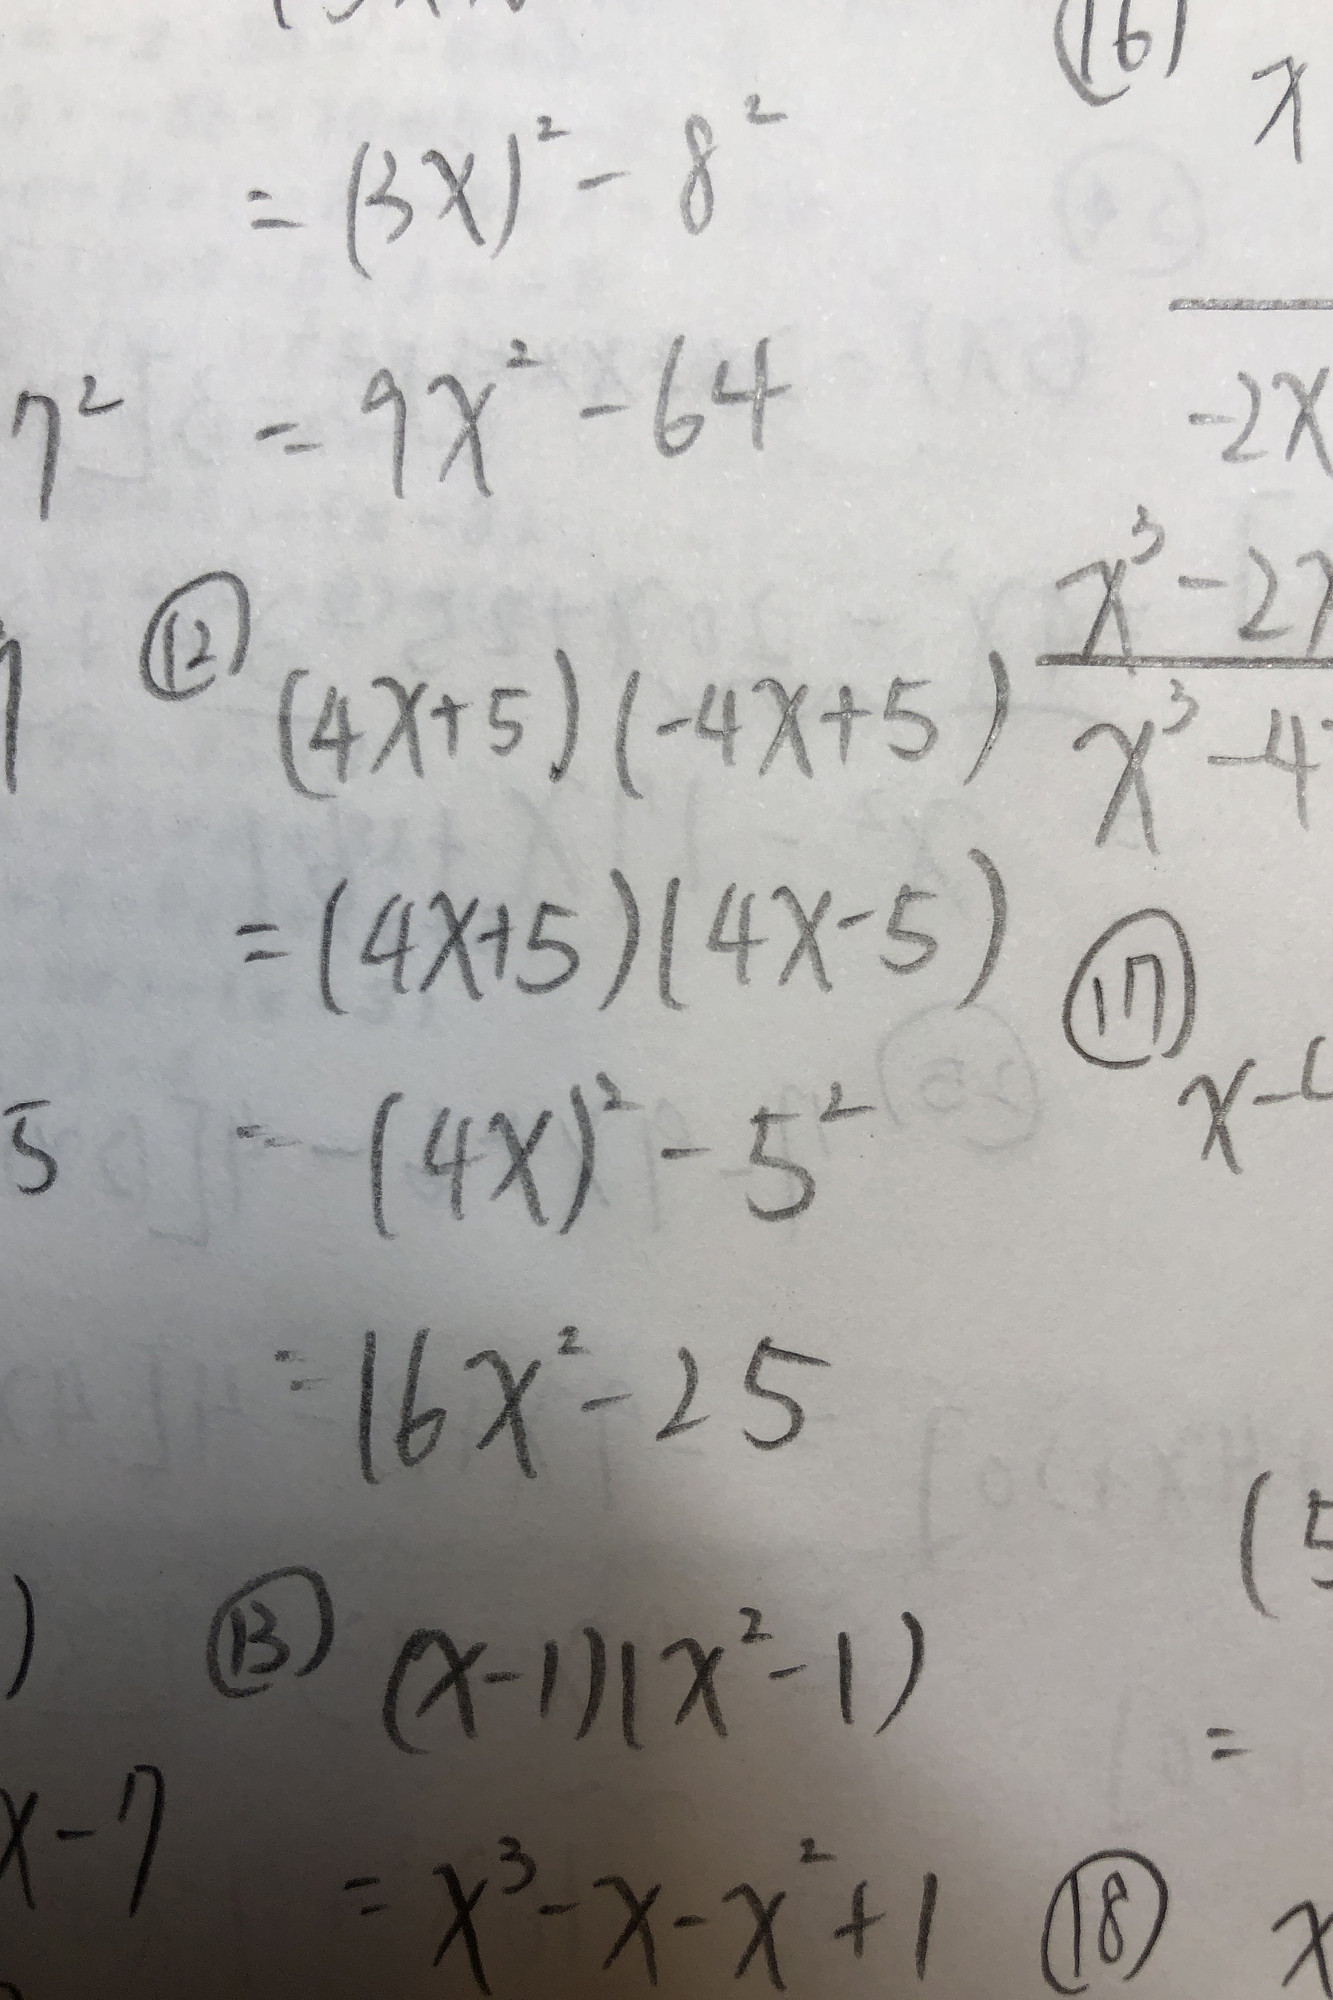 = (3x)² - 8²
7² = 9x² - 64
⑫ (4x+5)(-4x+5)
= (4x+5)(4x-5)
5 = (4x)² - 5²
= 16x² - 25
⑬ (x-1)(x²-1)
x-7
= x³ - x - x² + 1
⑯
x
-2x
x³ - 2x
x³ - 4
⑰
x -
(5
=
⑱ x